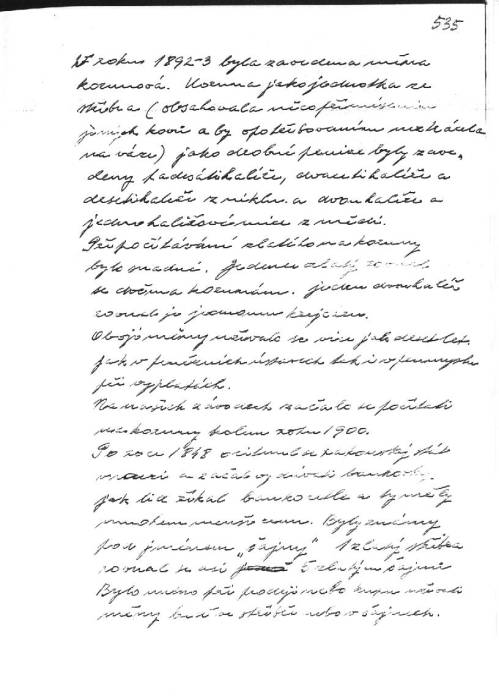 535
V roku 1892-3 byla zavedena měna
korunová. Koruna jako jednotka ze
stříbra (obsahovala něco přimísenin
jiných kovů a by opotřebováním neztrácela
na váze) jako drobné peníze byly zave-
deny padesátihaliče, dvacetihaliče a
desetihaliče z niklu. a dvouhaliče a
jednohaliřové mince z mědi.
Přepočítávání zlatého na koruny
bylo snadné. Jeden zlatý rovnal
se dvěma korunám. jeden dvouhaliř
rovnal se jednomu krejcaru.
Obojí měny užívalo se více jak deset let.
jak v peněžních ústavech tak i v průmyslu
při výplatách.
Na našich závodech začalo se počítati
na koruny kolem roku 1900.
Po roce 1848 ocitnul se rakouský stát
v nouzi a začal vydávati bankovky.
jak lid říkal bankocetle a ty měly
mnohem menší cenu. Byly známy
pod jménem „šajny" 1 zlatý stříbra
rovnal se asi 5 zlatým šajnů
Bylo nutno při prodeji nebo kupu uvésti
měny buď ve stříbře nebo v šajnech.